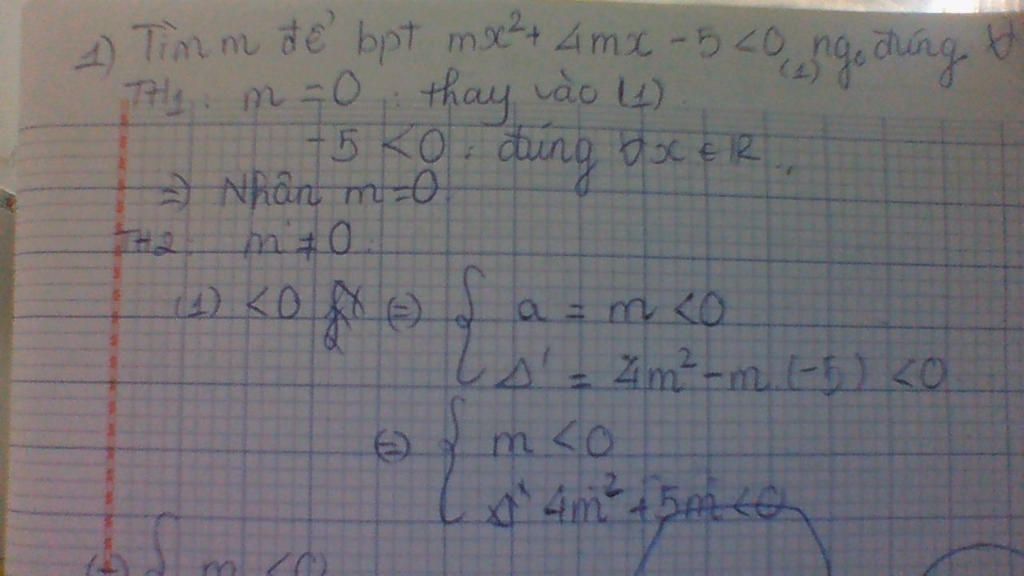 1) Tìm m để bpt mx² + 4mx - 5 < 0 (1) ng. đúng ∀
TH1: m = 0 : thay vào (1)
-5 < 0 : đúng ∀x ∈ R
=> Nhận m = 0
TH2: m ≠ 0
(1) < 0 (=) { a = m < 0
Δ' = 4m² - m.(-5) < 0
(=) { m < 0
Δ' 4m² + 5m < 0
(=) { m < 0